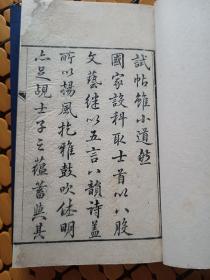 試帖雖小道然
國家設科取士首以八股
文藝继以五言八韻诗蓋
所以揚風扢雅鼓吹休明
亦足覘士子之蕴蓄與其